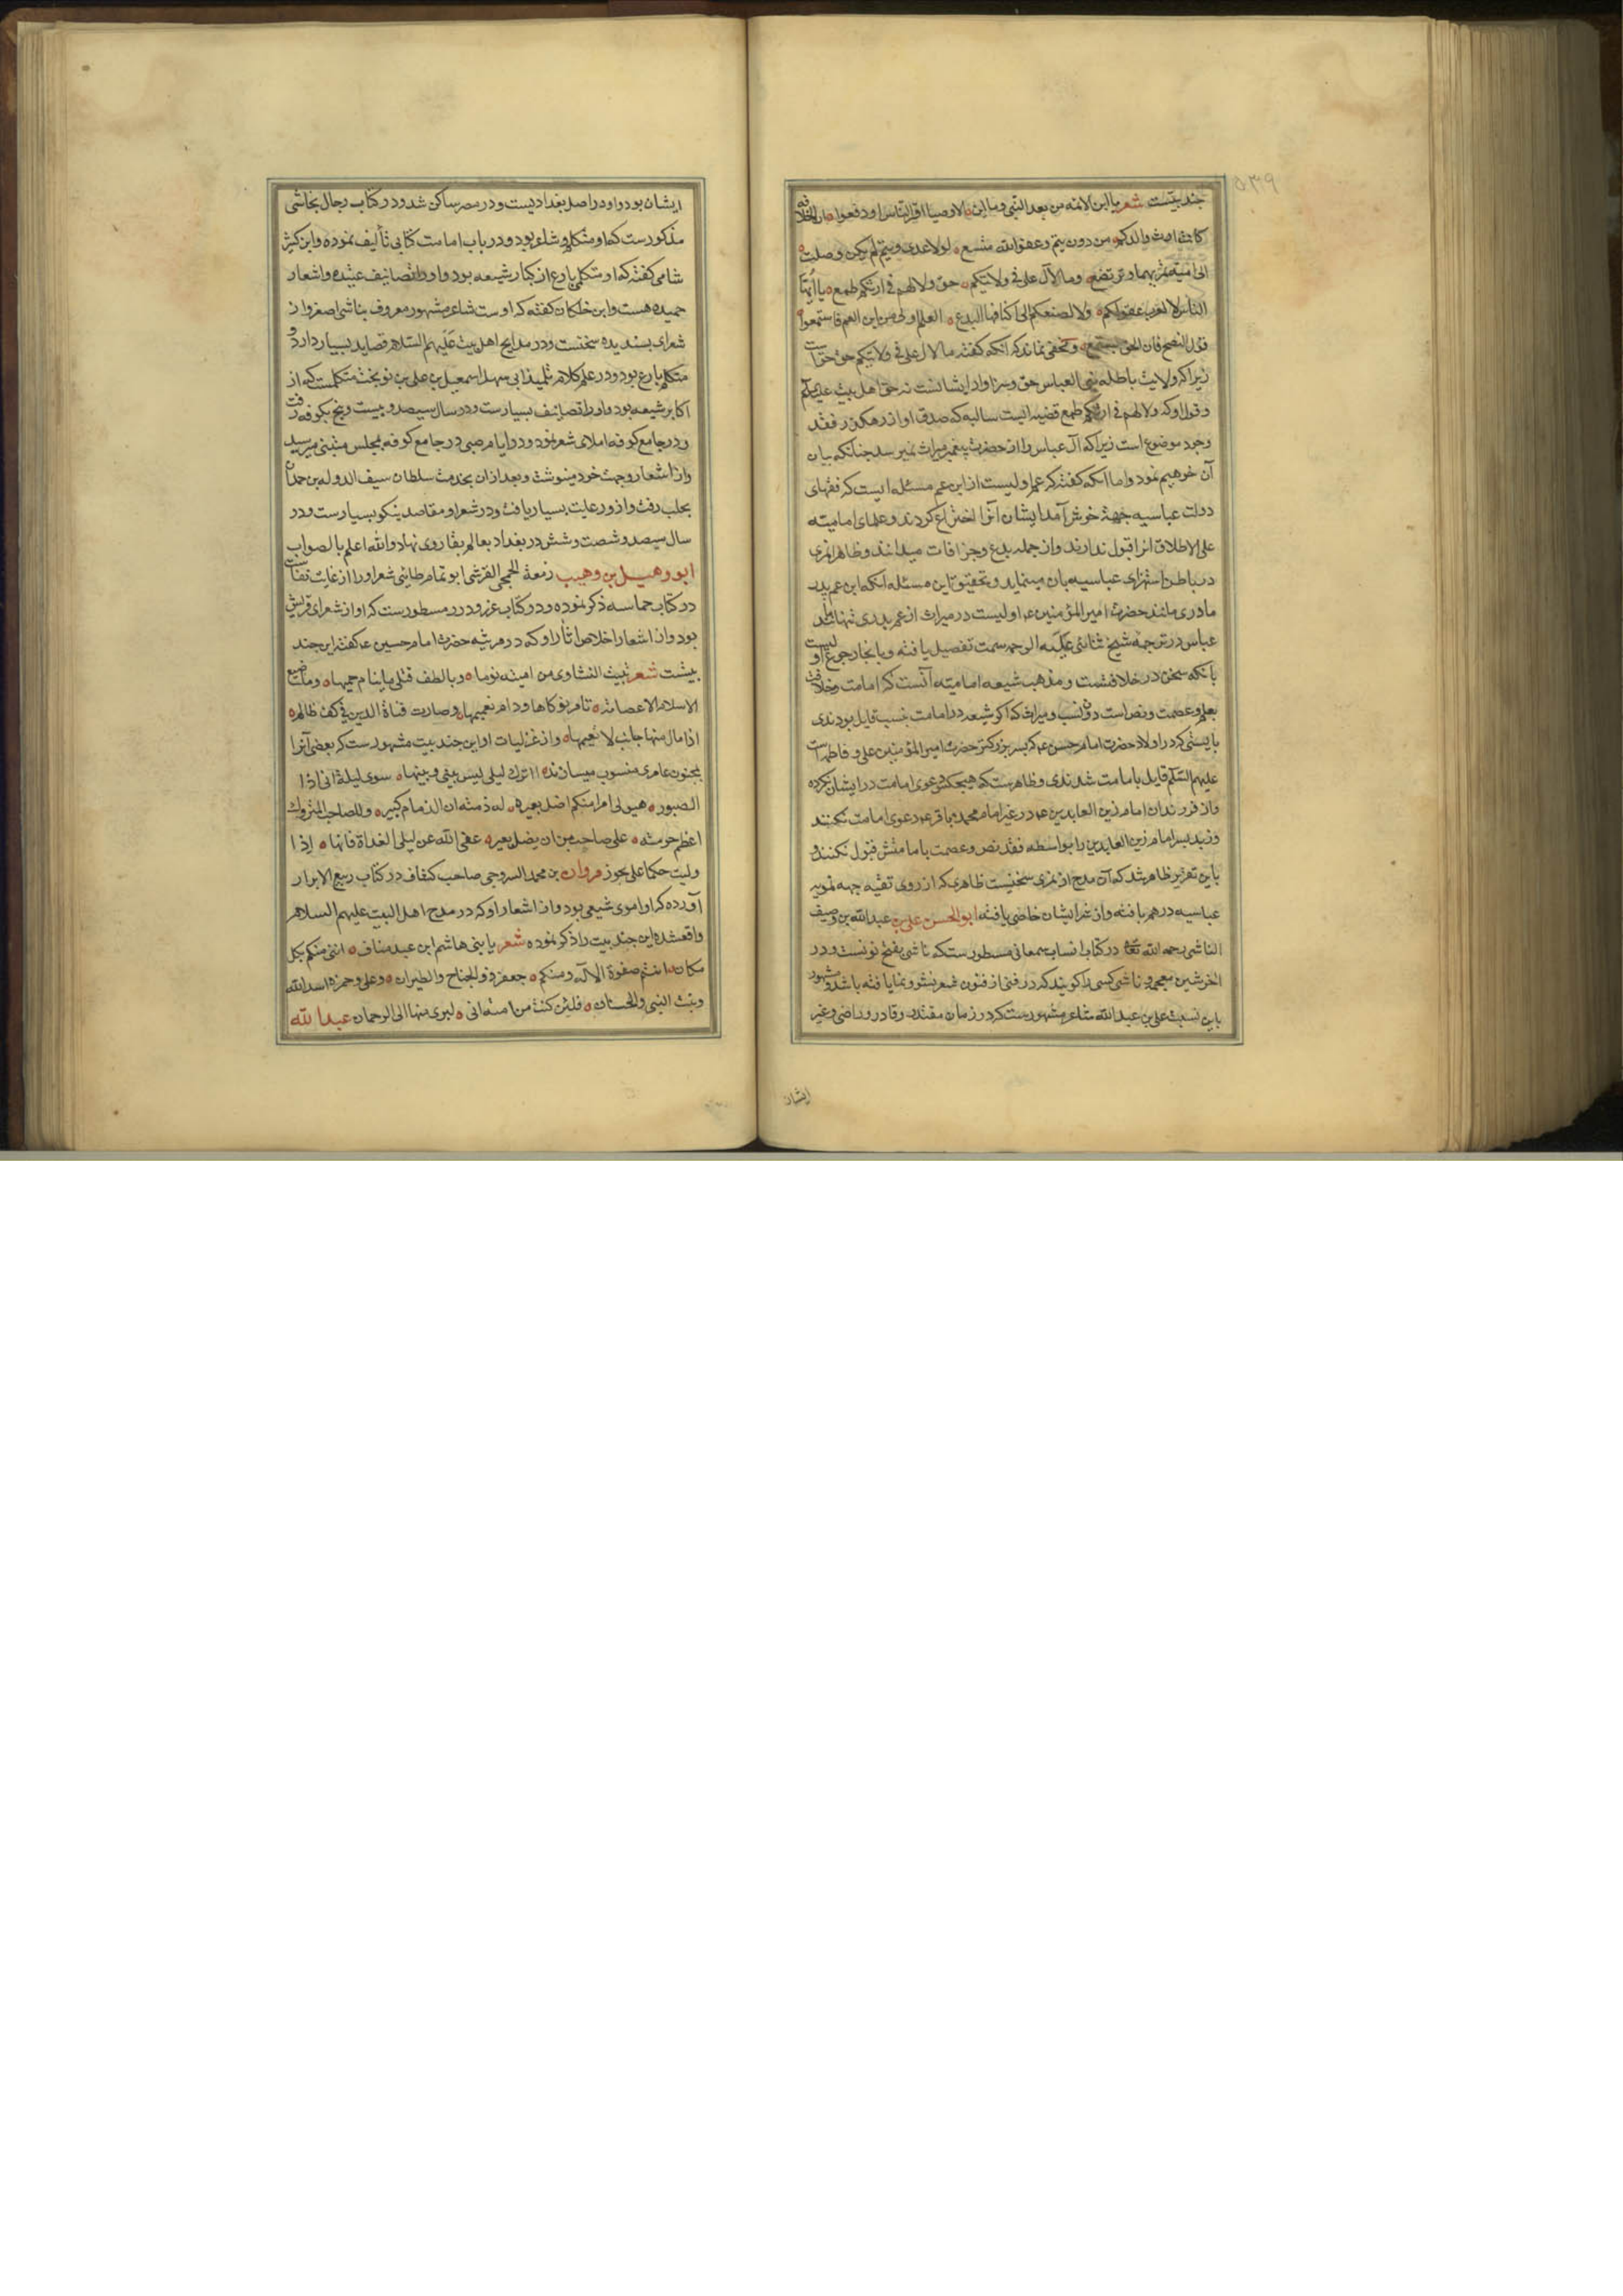 ۵۳۹
چند بیتست شعر یا ابن الائمه من بعد النبی و یا ابن الاوصیا اقر الناس او دفعوا ان الخلافة
کانت ارث والدکم من دون تیم و عفو الله متسع لولا عدی و تیم لم یکن وصلت
الی امیة تمریها و ترتضع وما لآل علی فی ولایتکم حق ولا لهم فی ارثکم طمع یا ایها
الناس لا تعزب عقولکم ولا تضفکم الی اکنافها البدع العم اولی من ابن العم فاستمعوا
قول النصح فان الحق یستمع و مخفی نماند که آنکه گفته ما لآل علی فی ولایتکم حق حق است
زیرا که ولایت باطله بنی العباس حق و سزاوار ایشانست نه حق اهل بیت علیهم السلام
و قول او که ولا لهم فی ارثکم طمع قضیه ایست سالبه که صدق او از رهگذر فقد
وجود موضوع است زیرا که آل عباس را از حضرت پیغمبر میراث نمیرسد چنانکه بیان
آن خواهیم نمود و اما آنکه گفته که عم اولیست از ابن عم مسئله ایست که فقهای
دولت عباسیه جهة خوش آمد ایشان آنرا اختراع کردند و علمای امامیه
علی الاطلاق آنرا قبول ندارند و از جمله بدع و جزافات میدانند و ظاهرا نمری
در باطن استهزای عباسیه بان مینماید و تحقیق این مسئله آنکه ابن عم پدر
مادری مانند حضرت امیر المؤمنین ع اولیست در میراث از عم پدری تنها مانند
عباس در ترجمه شیخ ثنائی علیه الرحمه سمت تفصیل یافته و بانجا رجوع اولیست
بانکه سخن در خلافتست و مذهب شیعه امامیه آنست که امامت و خلافت
بعلم و عصمت و نص است دون نسب و میراث که اگر شیعه در امامت بنسب قایل بودندی
بایستی که در اولاد حضرت امام حسن ع که پسر بزرگتر حضرت امیر المؤمنین علی و فاطمه است
علیهم السلم قایل بامامت شدندی و ظاهرست که هیچکس دعوی امامت در ایشان نکرده
و از فرزندان امام زین العابدین ع در غیر امام محمد باقر ع دعوی امامت نکنند
و زید پسر امام زین العابدین را بواسطه فقد نص و عصمت بامامتش قبول نکنند و
باین تقریر ظاهر شد که آن مدح از نمری سخنیست ظاهری که از روی تقیه جهه تمویه
عباسیه درهم بافته و از شر ایشان خلاصی یافته ابو الحسن علی بن عبدالله بن وصیف
الناشی رحمه الله تعالی در کتاب انساب سمعانی مسطورست که ناشی بفتح نونست و در
آخر شین معجمه و ناشی کسی را گویند که در فنی از فنون شعر نشو و نما یافته باشد و مشهور
باین نسبت علی بن عبدالله شاعر مشهورست که در زمان مقتدر و قادر و راضی و غیر
ایشان
ایشان بود و او در اصل بغدادیست و در مصر ساکن شد و در کتاب رجال نجاشی
مذکورست که او متکلم و شاعر بود و در باب امامت کتابی تألیف نموده و ابن کثیر
شامی گفته که او متکلمی بارع از کبار شیعه بود و او را تصانیف عدیده و اشعار
حمیده هست و ابن خلکان گفته که اوست شاعر مشهور معروف بناشی اصغر و از
شعرای پسندیده سخنست و در مدایح اهل بیت علیهم السلام قصاید بسیار دارد و
متکلم بارع بود و در علم کلام تلمیذ ابی سهل اسمعیل بن علی بن نوبخت متکلمست که از
اکابر شیعه بود و او را تصانیف بسیارست و در سال سیصد و بیست و پنج بکوفه رفت
و در جامع کوفه املای شعر نمود و در ایام صبی در جامع کوفه بمجلس متنبی میرسید
و از اشعار وجهت خود مینوشت و بعد ازان بخدمت سلطان سیف الدوله بن حمدان
بحلب رفت و ازو رعایت بسیار یافت و در شعر او مقاصد نیکو بسیارست و در
سال سیصد و شصت و شش در بغداد بعالم بقا روی نهاد والله اعلم بالصواب
ابو دهبل بن وهیب زمعة الجمحی القرشی ابو تمام طایی شعر او را از غایت نفاست
در کتاب حماسه ذکر نموده و در کتاب غرر و درر مسطورست که او از شعرای قریش
بود و از اشعار اخلاص آثار او که در مرثیه حضرت امام حسین ع گفته این چند
بیتست شعر تبیت النشاوی من امیة نوما و بالطف قتلی ما ینام حمیمها و ما ضیع
الاسلام الا عصابة تامر نوکاها و دام نعیمها و صارت قناة الدین فی کف ظالم
اذا مال منها جانب لا یقیمها و از غزلیات او این چند بیت مشهورست که بعضی آنرا
بمجنون عامری منسوب میسازند أاترک لیلی لیس بینی و بینها سوی لیلة انی اذا
الصبور هبونی امرا منکم اضل بعیره له ذمة ان الذمام کبیر و للصاحب المتروک
اعظم حرمة علی صاحب من ان یضل بعیر عفی الله عن لیلی الغداة فانها اذا
ولیت حکما علی تجور مروان بن محمد السروجی صاحب کشاف در کتاب ربیع الابرار
آورده که او اموی شیعی بود و از اشعار او که در مدح اهل البیت علیهم السلام
واقعشده این چند بیت را ذکر نموده شعر یا بنی هاشم ابن عبد مناف اننی منکم بکل
مکان انتم صفوة الاله و منکم جعفر ذو الجناح والطیران و علی و حمزة اسد الله
و بنت النبی والحسنان فلئن کنت من امیة انی لبری منها الی الرحمان عبدالله